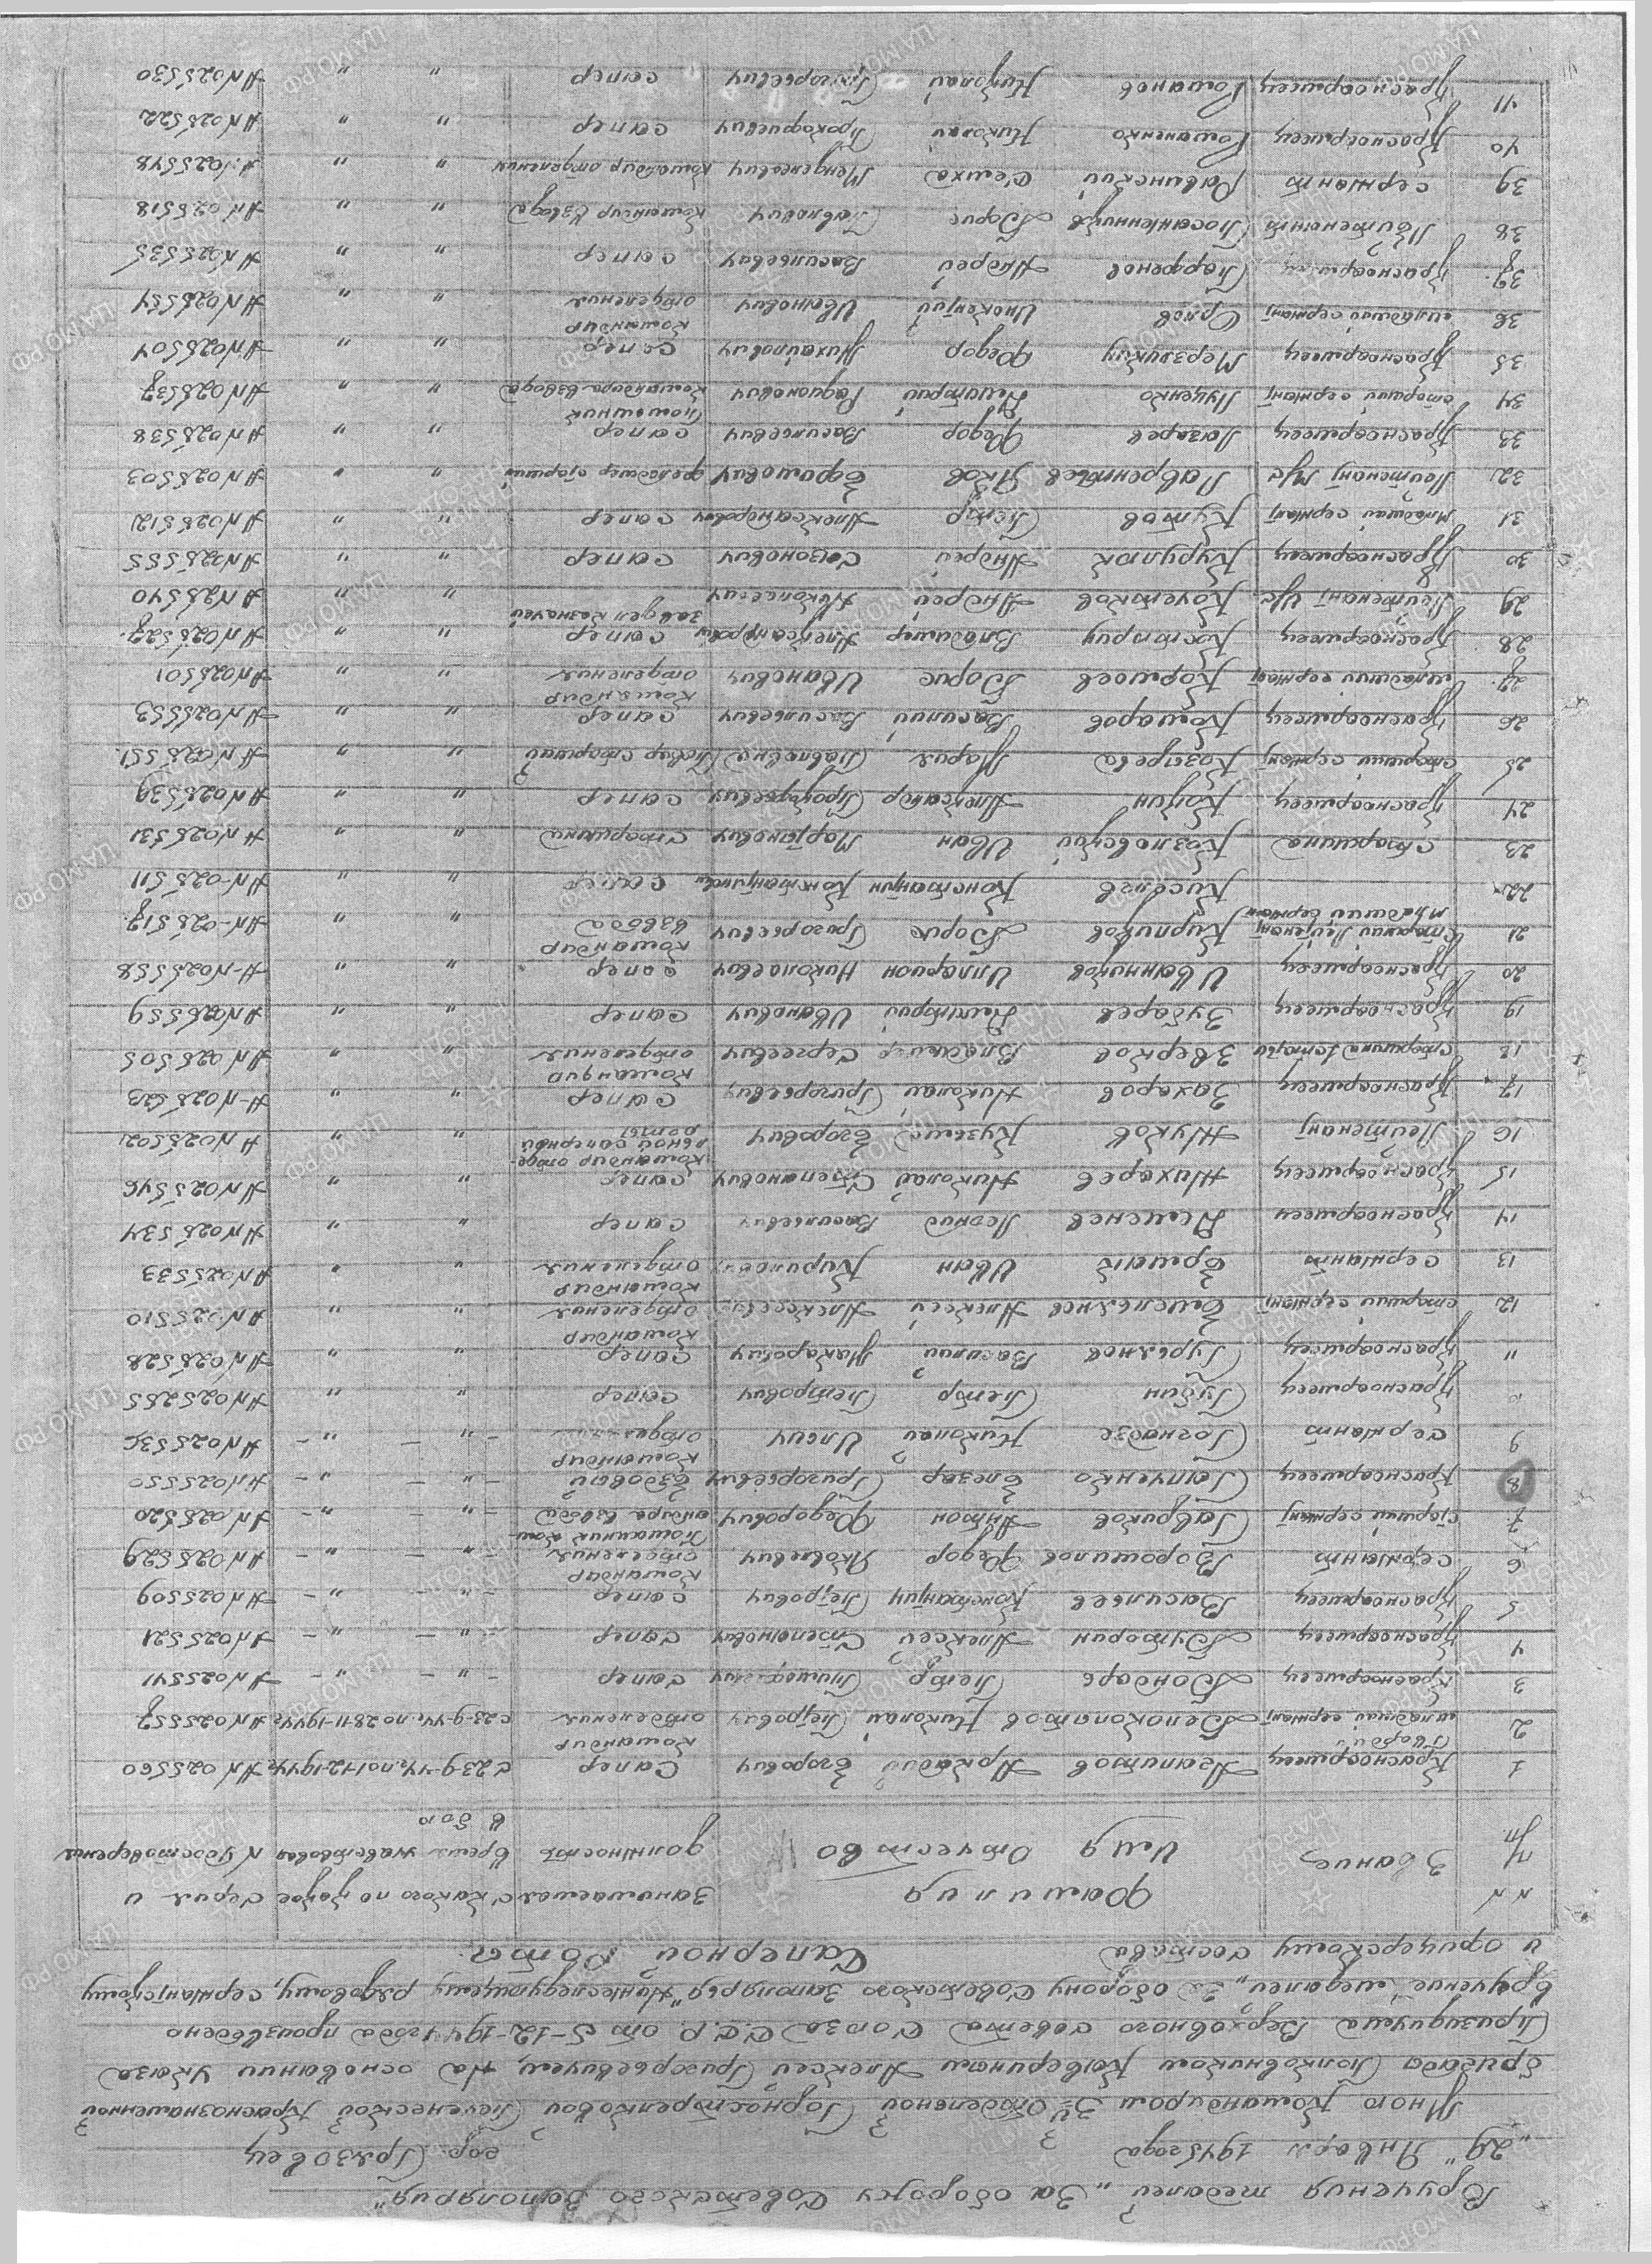 Вручения медалей „За оборону Советского Заполярья"
„29" Января 1945 года гор. Грязовец
Мною Командиром 3й Отдельной Горнострелковой Печенгской Краснознаменной
бригады Полковником Кавериным Алексеем Григорьевичем, на основании Указа
Призидиума Верховного Совета Союза С.С.Р. от 5-12-1944 года произведено
вручение медалей „За оборону Советского Заполярья" Нижеследующему рядовому, сержантскому
и офицерскому составу Саперной Роты.
NN п/п Звание Фамилия Имя Отчество Занимаемая должность С какого по какое время участвовал в бою Серия и N Удостоверения
1 Красноармеец Агапитов Аркадий Егорович Сапер С 23-9-44г. по 1-12-1944г. АN 025560
2 Гвардии младший сержант Белокопытов Николай Петрович командир отделения С 23-9-44г. по 28-11-1944г. АN 025557
3 Красноармеец Бондарь Петр Тимофеевич Сапер – " – – " – АN 025541
4 Красноармеец Буторин Алексей Степанович Сапер – " – – " – АN 025521
5 Красноармеец Васильев Константин Петрович сапер – " – – " – АN 025509
6 Сержант Ворошилов Федор Яковлевич Командир отделения – " – – " – АN 025529
7 Старший сержант Гавриков Антон Федорович Помошник командира взвода – " – – " – АN 025520
8 Красноармеец Гапченко Елезар Григорьевич Ездовый – " – – " – АN 025550
9 Сержант Гогнадзе Николай Ильич Командир отделения – " – – " – АN 025536
10 Красноармеец Губин Петр Петрович сапер " " АN 025255
11 Красноармеец Гурьянов Василий Макарович Сапер " " АN 025528
12 старший сержант Емельянов Алексей Алексеевич командир отделения " " АN 025510
13 Сержант Ермак Иван Кирилович командир отделения " " АN 025533
14 Красноармеец Деменев Леонид Васильевич сапер " " АN 025534
15 Красноармеец Жихарев Николай Степанович сапер " " АN 025546
16 Лейтенант Жуков Кузьма Егорович командир отдельной саперной роты " " АN 025502
17 Красноармеец Захаров Николай Григорьевич сапер " " А-N 025523
18 Старшина Зверков Владимир Сергеевич командир отделения " " АN 025505
19 Красноармеец Зубарев Дмитрий Иванович сапер " " АN 025559
20 Красноармеец Иванников Илларион Николаевич сапер " " А-N 025558
21 Старший Лейтенант Кирликов Борис Григорьевич командир взвода " " АN-025517
22 младший сержант Киселев Константин Константинович сапер " " АN-025511
23 Старшина Козловский Иван Мартынович Старшина " " АN 025531
24 Красноармеец Козин Александр Прокофьевич сапер " " АN 025539
25 Старший сержант Козырева Мария Павловна Повар старший " " АN 025551
26 Красноармеец Комаров Василий Васильевич сапер " " АN 025553
27 младший сержант Коршоев Борис Иванович командир отделения " " АN 025501
28 Красноармеец Костриц Владимир Александрович сапер " " АN 025527
29 Лейтенант Кочетков Андрей Николаевич завдел казначей " " АN 025540
30 Красноармеец Курулюк Андрей Созонович сапер " " АN 025555
31 младший сержант Кутов Петр Александрович сапер " " АN 025512
32 Лейтенант м/с Лаврентьев Яков Ефимович фельдшер старший " " АN 025503
33 Красноармеец Лазарев Федор Васильевич сапер " " АN 025538
34 старший сержант Луценко Дмитрий Радионович Помошник командира взвода " " АN 025537
35 Красноармеец Мерзликин Федор Михайлович сапер " " АN 025504
36 младший сержант Орлов Инокентий Иванович командир отделения " " АN 025554
37 Красноармеец Парфенов Андрей Васильевич сапер " " АN 025535
38 Лейтенант Посанненников Борис Павлович командир взвода " " АN 025518
39 сержант Равинский Семха Менделевич командир отделения " " АN 025548
40 Красноармеец Романенко Николай Прокофьевич сапер " " АN 025522
41 Красноармеец Романов Николай Григорьевич сапер " " АN 025530